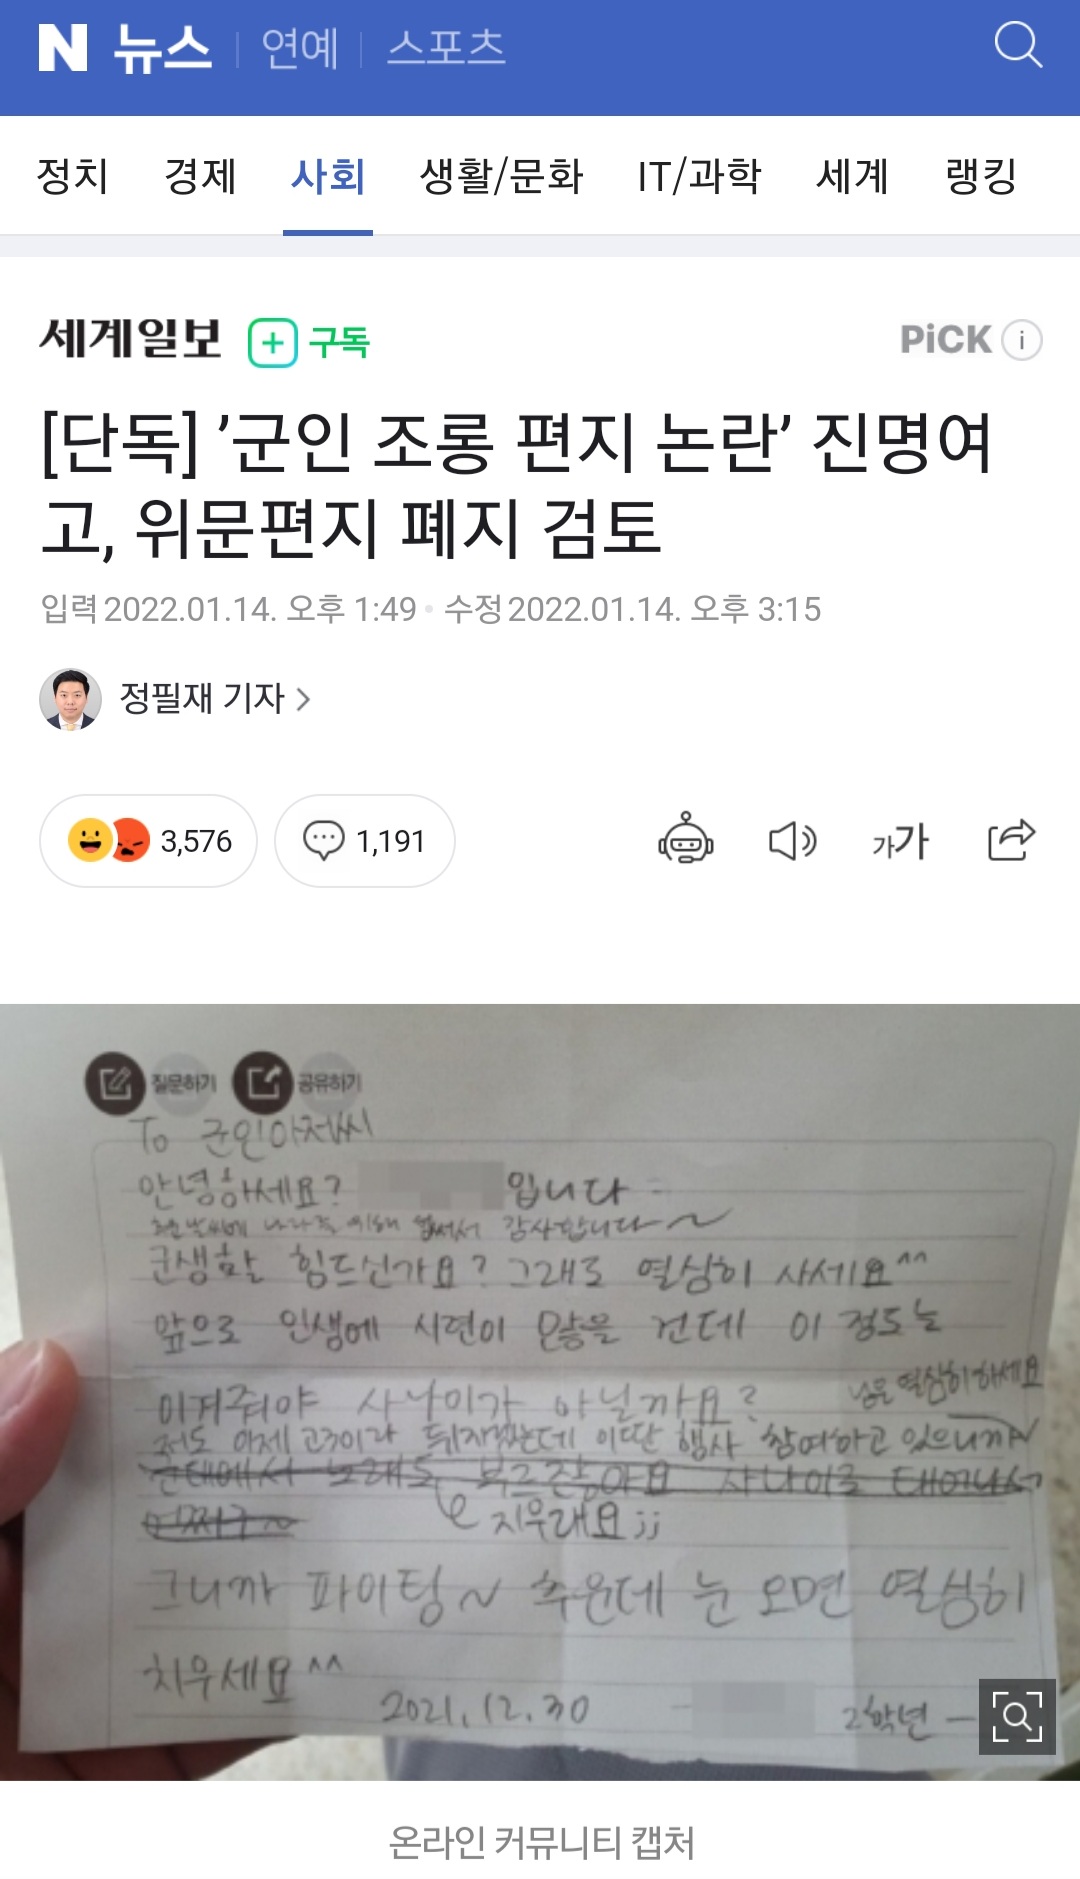 N 뉴스 연예 스포츠
정치 경제 사회 생활/문화 IT/과학 세계 랭킹
세계일보 + 구독 PiCK i
[단독] ’군인 조롱 편지 논란’ 진명여
고, 위문편지 폐지 검토
입력 2022.01.14. 오후 1:49 · 수정 2022.01.14. 오후 3:15
정필재 기자 >
3,576 1,191 가가
질문하기 공유하기
To 군인아저씨
안녕하세요? 입니다
추운 날씨에 나라를 위해 힘써서 감사합니다~
군생활 힘드신가요? 그래도 열심히 사세요^^
앞으로 인생에 시련이 많을 건데 이 정도는
이겨줘야 사나이가 아닐까요?
저도 이제 고3이라 뒤지겠는데 이딴 행사 참여하고 있으니까
님은 열심히하세요
군대에서 노래도 부르잖아요 사나이로 태어나서
어쩌구~
지우래요;;
그니까 파이팅~ 추운데 눈 오면 열심히
치우세요^^
2021.12.30 - 2학년 -
온라인 커뮤니티 캡처